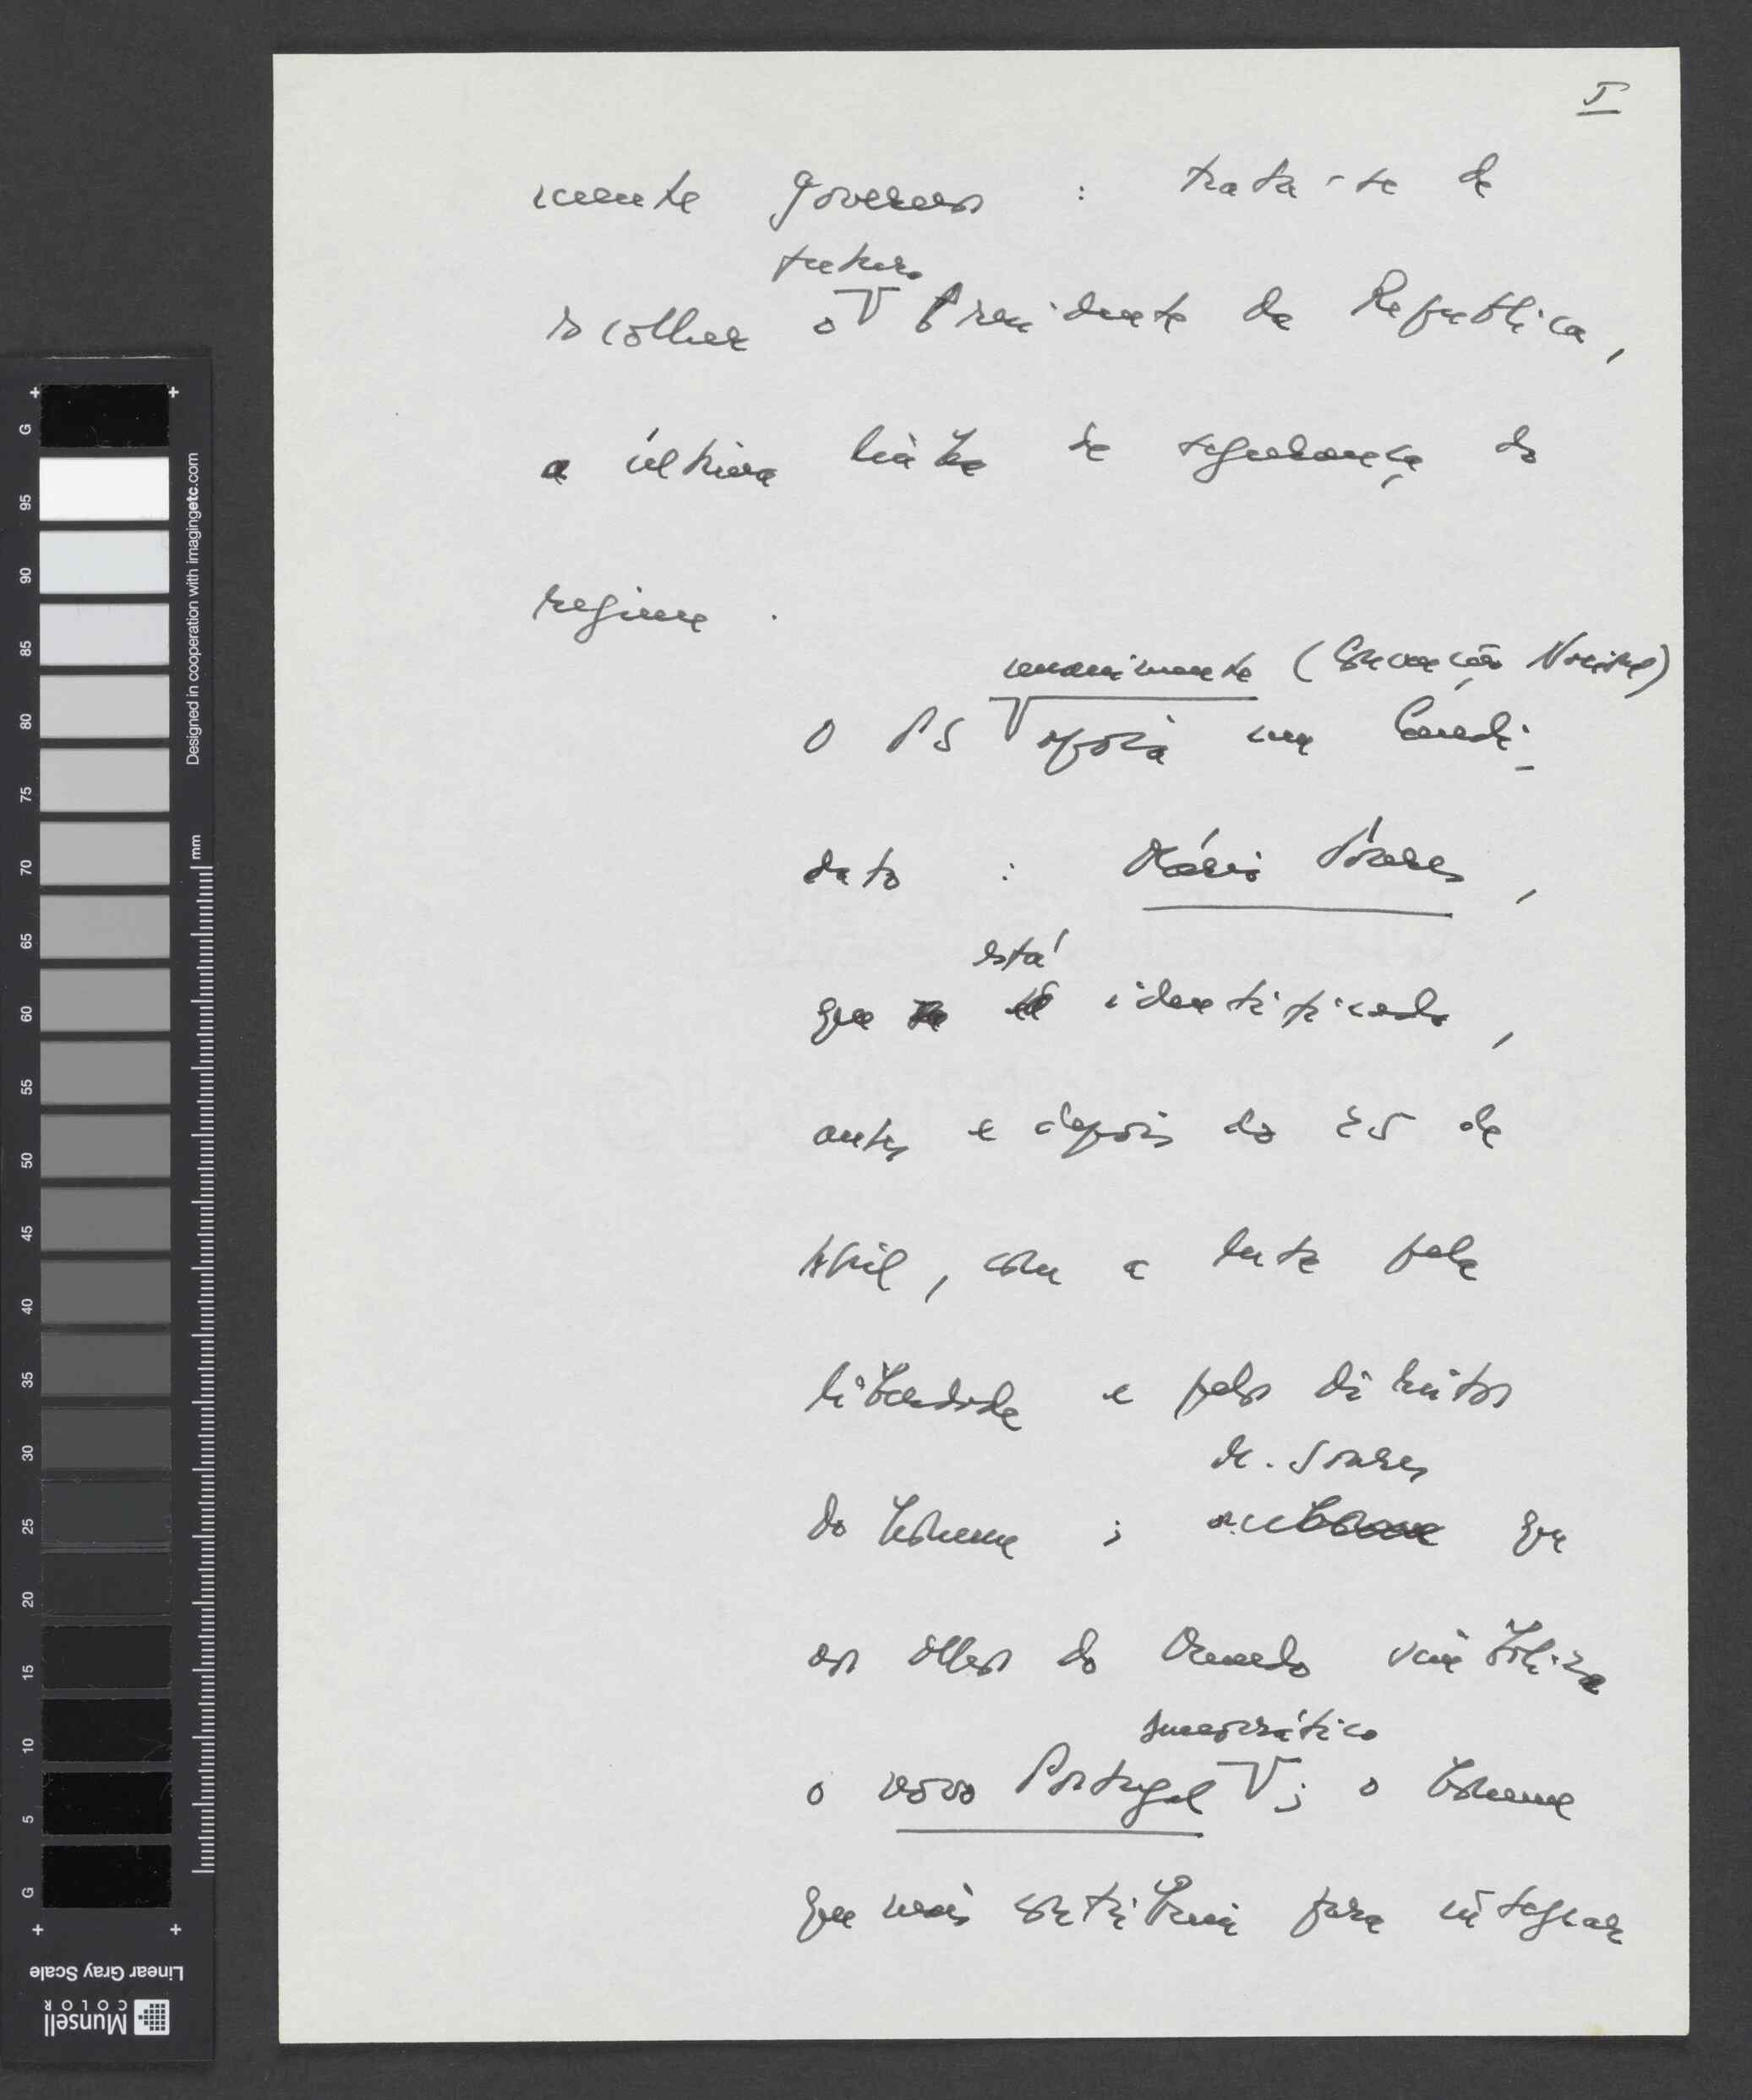 5
mente governos : trata-se de
futuro
escolher o Presidente da República,
a última linha de segurança do
regime .
unanimemente (Convenção Nacional)
O PS apoia um Candi-
dato : Mário Soares ,
está
que identificado ,
antes e depois do 25 de
Abril, com a luta pela
liberdade e pelos direitos
M. Soares
do homem ; que
aos olhos do Mundo simboliza
democrático
o novo Portugal ; o homem
que mais contribuiu para integrar
G
95
90
85
80
75
70
65
60
55
50
45
40
35
30
25
20
15
10
5
G
mm
Designed in cooperation with imagingetc.com
Linear Gray Scale
Munsell
COLOR